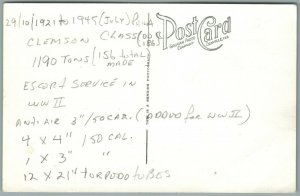 29/10/1921 to 1945 (July)
Post Card
CLEMSON CLASS (DD 186)
1190 TONS (156 total made
ESCORT SERVICE IN
WW II
ANTI AIR 3"/50 CAR. (ADDED for WW II)
4 X 4" / 50 CAL.
1 X 3" "
12 X 21" TORPEDO TUBES